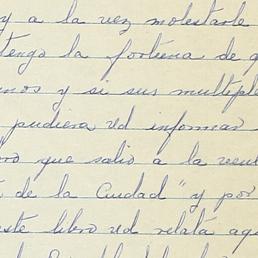 y a la vez molestarle
tengo la fortuna de q
nos y si sus multiple
pudiera Vd informar
ro que salio a la vent
de la Ciudad" y por
ste libro Vd relata ag